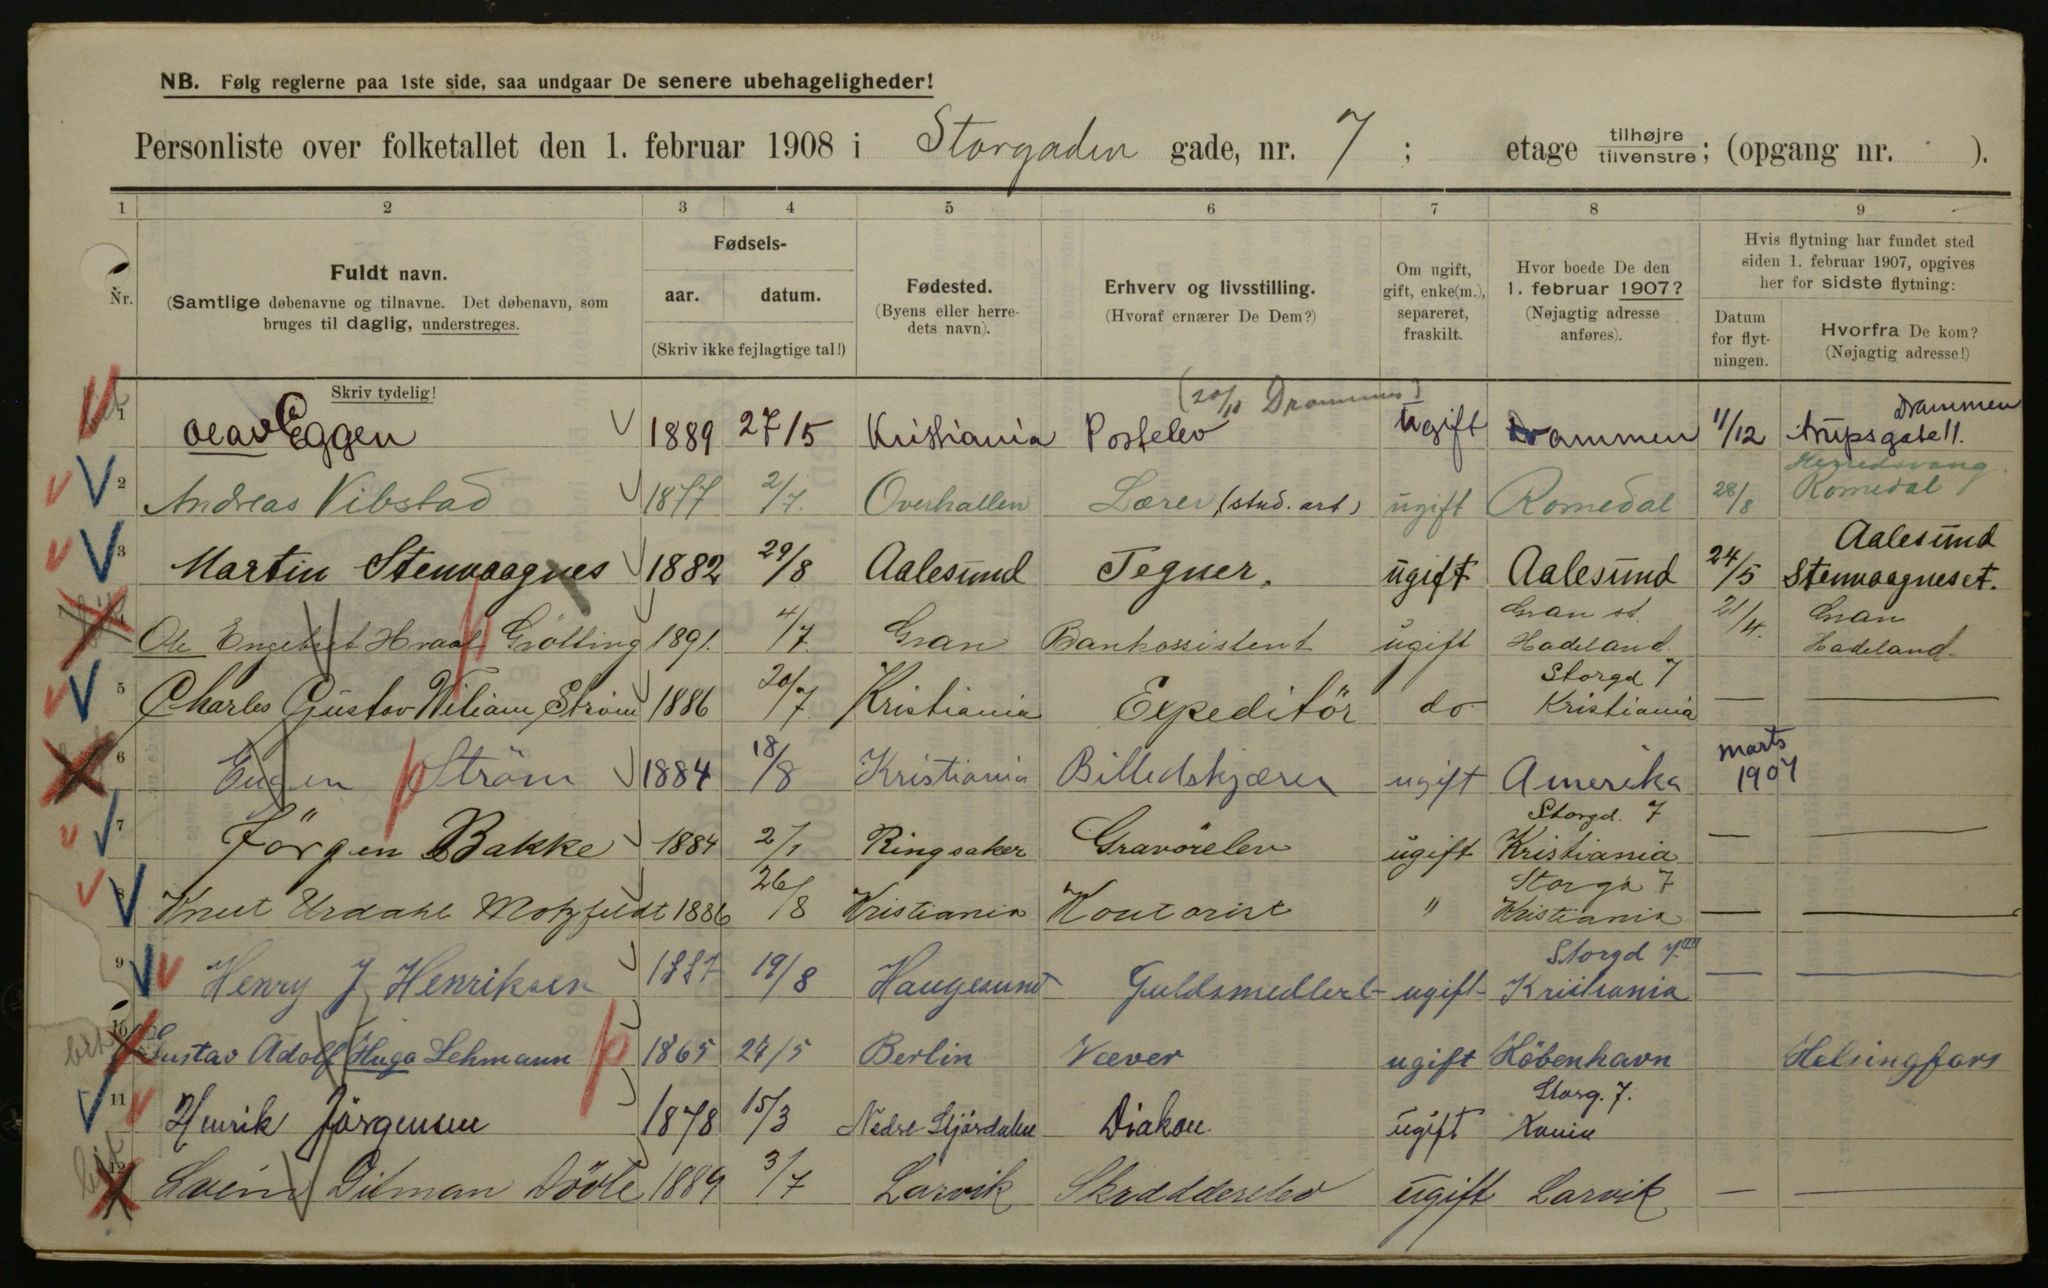 NB. Følg reglerne paa 1ste side, saa undgaar De senere ubehageligheder!
Personliste over folketallet den 1. februar 1908 i Storgaden gade, nr. 7 ; etage tilhøjre tilvenstre ; (opgang nr. ).
1 2 3 4 5 6 7 8 9
Nr.
Fuldt navn.
(Samtlige døbenavne og tilnavne. Det døbenavn, som
bruges til daglig, understreges.
Skriv tydelig!
Fødsels-
aar. datum.
(Skriv ikke fejlagtige tal!)
Fødested.
(Byens eller herre-
dets navn).
Erhverv og livsstilling.
(Hvoraf ernærer De Dem?)
Om ugift,
gift, enke(m.),
separeret,
fraskilt.
Hvor boede De den
1. februar 1907?
(Nøjagtig adresse
anføres).
Hvis flytning har fundet sted
siden 1. februar 1907, opgives
her for sidste flytning:
Datum
for flyt-
ningen.
Hvorfra De kom?
(Nøjagtig adresse!)
(20/11 Drammen)
1 Olav Eggen 1889 27/5 Kristiania Postelev ugift Drammen 11/12 Drammen
11.
2 Andreas Vibstad 1877 2/7. Overhallen Lærer (stud. art) ugift Romedal 28/8 Herredsvang.
Romedal
3 Martin Stenvaagnes 1882 29/8 Aalesund Tegner. ugift Aalesund 24/5 Aalesund
Stenvaagneset.
Ole Engebret Hvaal Götting 1891. 4/7. Gran Bankassistent ugift Gran st.
Hadeland. 21/4. Gran
Hadeland.
5 Charles Gustav Wiliam Ström 1886 20/7 Kristiania Expeditör do Storgd 7
Kristiania — —
6 Eugen Ström 1884 18/8 Kristiania Billedskjærer ugift Amerika marts
1907
7 Jörgen Bakke 1884 2/1 Ringsaker Gravörelev ugift Storgd. 7
Kristiania — —
8 Knut Urdahl Motzfeldt 1886 26/8 Kristiania Kontorist " Storgd 7
Kristiania — —
9 Henry J Henriksen 1887 19/8 Haugesund Guldsmedlærl- ugift Storgd 7.
Kristiania — —
10 Gustav Adolf Hugo Lehmann 1865 27/5 Berlin Væver ugift Köbenhavn Helsingfors
11 Henrik Jörgensen 1878 15/3 Nedre Stjørdalen Diakon. ugift Storg. 7.
12 Dövle 1889 3/7 Larvik Skrædderelev ugift Larvik — —